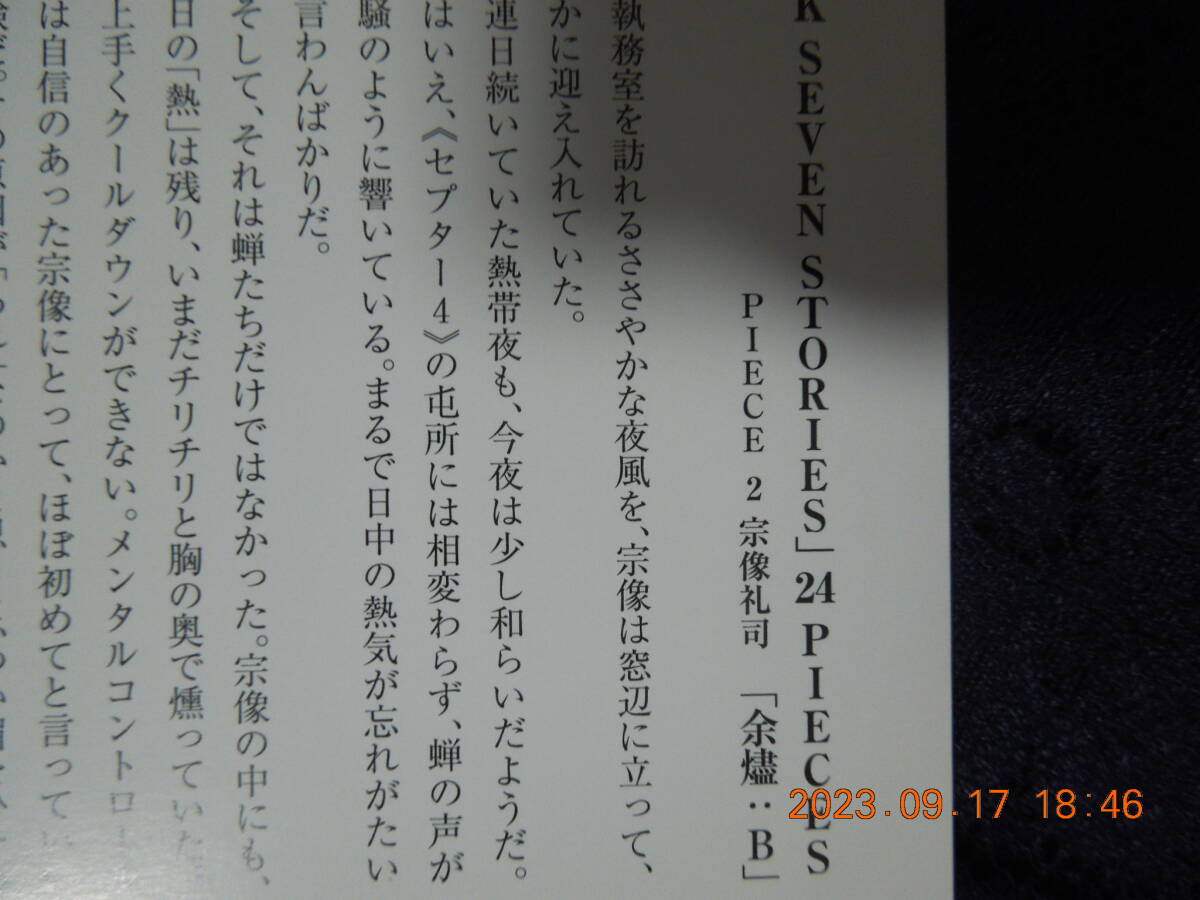 K SEVEN STORIES」24 PIECES
PIECE 2 宗像礼司 「余燼：B」
執務室を訪れるささやかな夜風を、宗像は窓辺に立って、
かに迎え入れていた。
連日続いていた熱帯夜も、今夜は少し和らいだようだ。
はいえ、《セプター4》の屯所には相変わらず、蝉の声が
騒のように響いている。まるで日中の熱気が忘れがたい
言わんばかりだ。
そして、それは蝉たちだけではなかった。宗像の中にも、
日の「熱」は残り、いまだチリチリと胸の奥で燻っていた
上手くクールダウンができない。メンタルコントロー
は自信のあった宗像にとって、ほぼ初めてと言ってい
2023.09.17 18:46